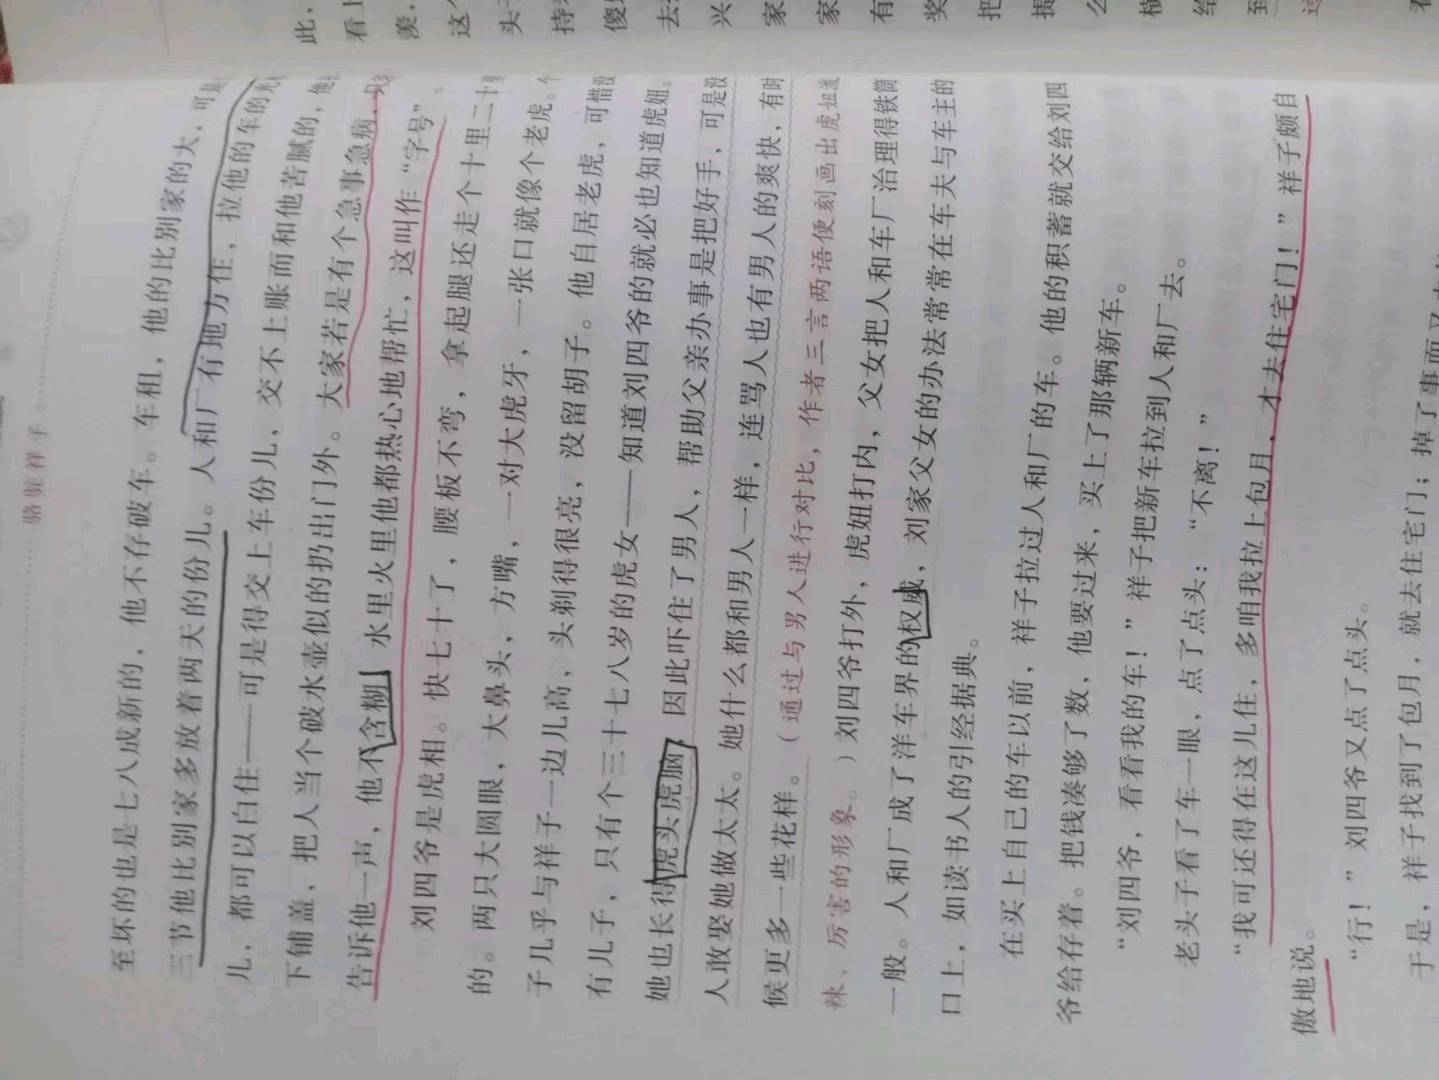 骆驼祥子
至坏的也是七八成新的，他不存破车。车租，他的比别家的大，可是
三节他比别家多放着两天的份儿。人和厂有地方住，拉他的车的光
儿，都可以白住——可是得交上车份儿，交不上账而和他苦腻的，他
下铺盖，把人当个破水壶似的扔出门外。大家若是有个急事急病，只
告诉他一声，他不含糊，水里火里他都热心地帮忙，这叫作“字号”。
刘四爷是虎相。快七十了，腰板不弯，拿起腿还走个十里二十里
的。两只大圆眼，大鼻头，方嘴，一对大虎牙，一张口就像个老虎。个
子几乎与祥子一边儿高，头剃得很亮，没留胡子。他自居老虎，可惜没
有儿子，只有个三十七八岁的虎女——知道刘四爷的就必也知道虎妞。
她也长得虎头虎脑，因此吓住了男人，帮助父亲办事是把好手，可是没
人敢娶她做太太。她什么都和男人一样，连骂人也有男人的爽快，有时
候更多一些花样。（通过与男人进行对比，作者三言两语便刻画出虎妞泼
辣、厉害的形象。）刘四爷打外，虎妞打内，父女把人和车厂治理得铁筒
一般。人和厂成了洋车界的权威，刘家父女的办法常常在车夫与车主的
口上，如读书人的引经据典。
在买上自己的车以前，祥子拉过人和厂的车。他的积蓄就交给刘四
爷给存着。把钱凑够了数，他要过来，买上了那辆新车。
“刘四爷，看看我的车！”祥子把新车拉到人和厂去。
老头子看了车一眼，点了点头：“不离！”
“我可还得在这儿住，多咱我拉上包月，才去住宅门！”祥子颇自
傲地说。
“行！”刘四爷又点了点头。
于是，祥子找到了包月，就去住宅门；掉了事而又